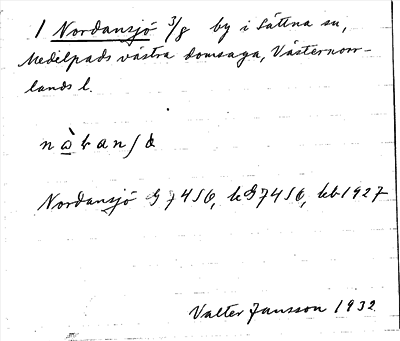 1 Nordansjö 3/8 by i Sättna sn,
Medelpads västra domsaga, Västernorr-
lands l.
Nordansjö G 7456, kG 7456, kb 1927
Valter Jansson 1932